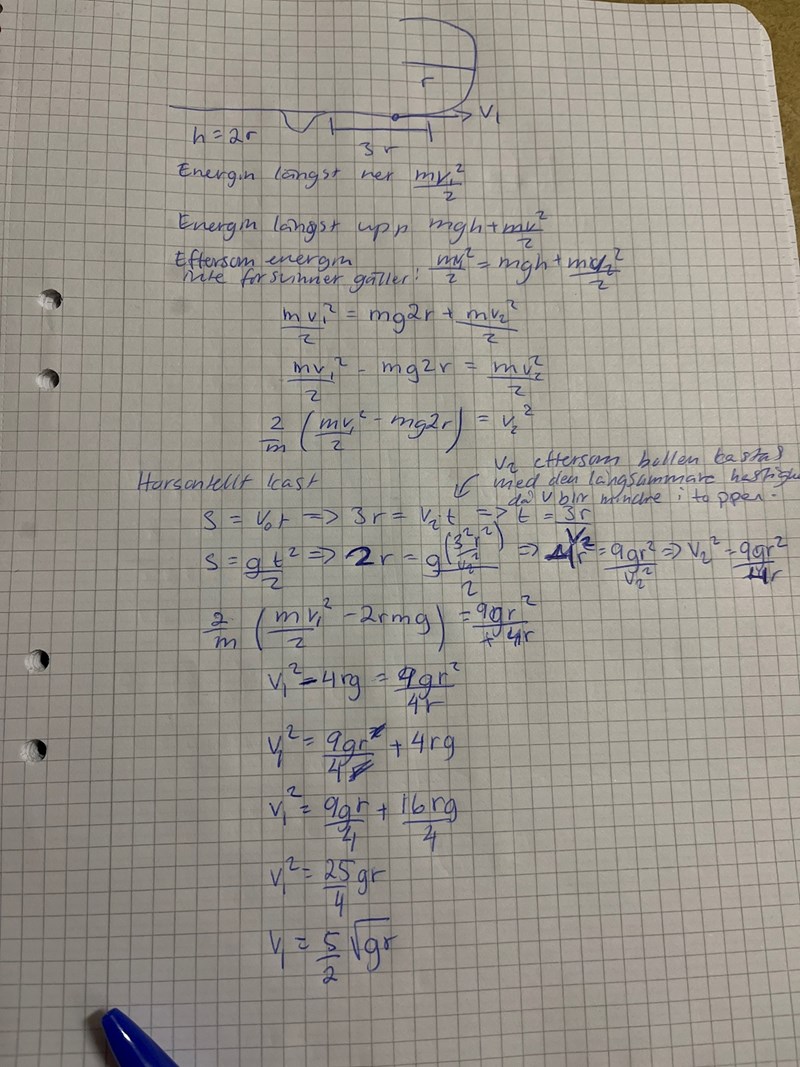 r
V₁
h = 2r
3r
Energin längst ner mv₁²/2
Energin längst upp mgh + mv²/2
Eftersom energin
inte försvinner gäller: mv₁²/2 = mgh + mv₂²/2
mv₁²/2 = mg2r + mv₂²/2
mv₁²/2 - mg2r = mv₂²/2
2/m (mv₁²/2 - mg2r) = v₂²
v₂ eftersom bollen kastas
Horsontellt kast
med den långsammare hastigh
då v blir mindre i toppen.
S = v₀t => 3r = v₂t => t = 3r/v₂
S = gt²/2 => 2r = g(3²r²/v₂²)/2 => 4r = 9gr²/v₂² => v₂² = 9gr²/4r
2/m (mv₁²/2 - 2rmg) = 9gr²/4r
v₁² - 4rg = 9gr²/4r
v₁² = 9gr²/4r + 4rg
v₁² = 9gr/4 + 16rg/4
v₁² = 25/4 gr
v₁ = 5/2 √gr